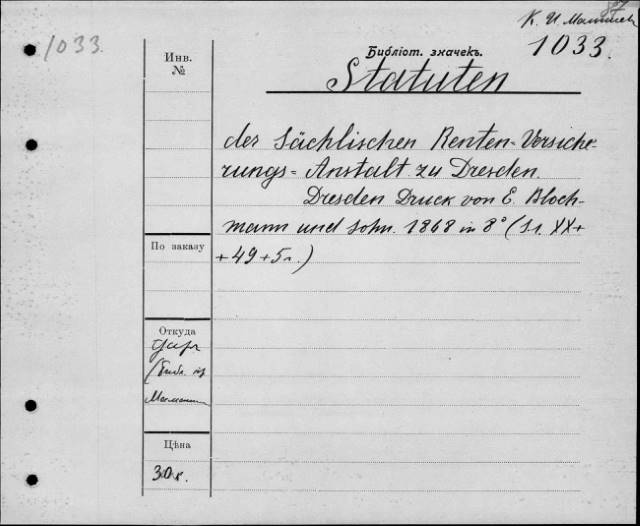 1033.
К. И.
Инв.
№
Библіот. значекъ.
1033.
Statuten
der Sächlischen Renten-Versiche-
rungs-Anstalt zu Dresden.
Dresden Druck von E. Bloch-
mann und Sohn. 1868 in 8° (
По заказу
+49+5
Откуда
Даръ
Цѣна
30 к.